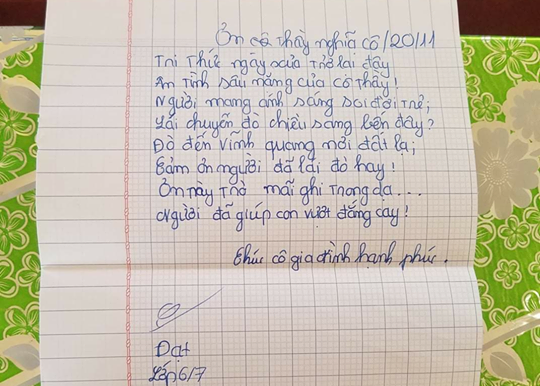 Ơn cô thầy nghĩa cô /20/11
Tri Thức ngày xưa Trở lại đây
Ân Tình sâu nặng của cô Thầy!
Người mang ánh sáng soi đời Trẻ;
Lái chuyến đò chiều sang bến đây?
Đò đến Vĩnh quang nơi đất lạ;
Cảm ơn người đã lái đò hay!
Ơn này Trò mãi ghi Trong dạ...
Người đã giúp con vượt đắng cay!
Chúc cô gia đình hạnh phúc.
Đạt
Lớp 6/7